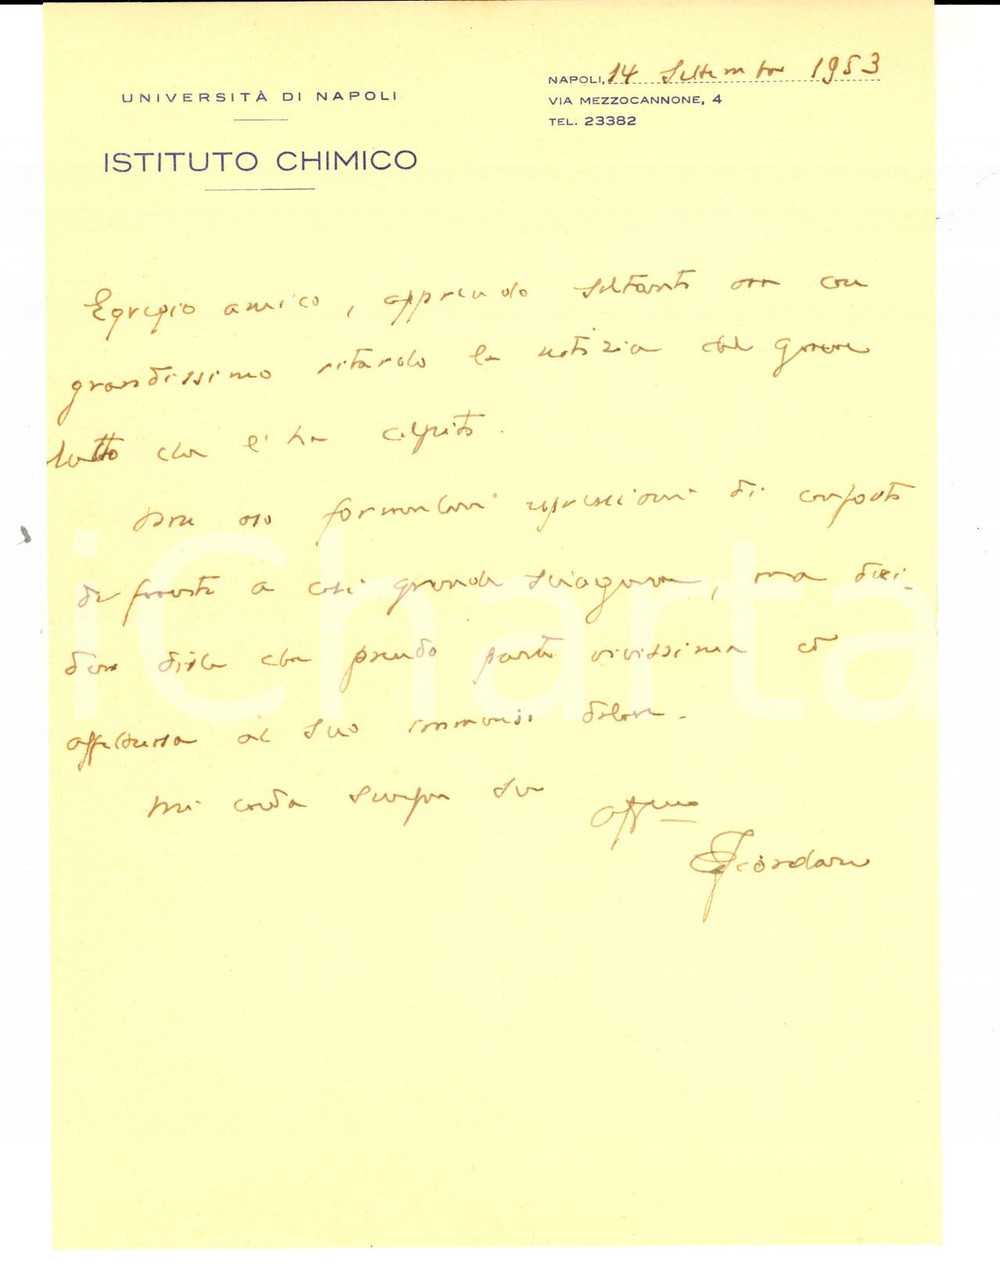 UNIVERSITÀ DI NAPOLI
ISTITUTO CHIMICO
NAPOLI, 14 Settembre 1953
VIA MEZZOCANNONE, 4
TEL. 23382
Egregio amico, apprendo soltanto ora con
grandissimo ritardo la notizia del grave
lutto che l'ha colpito.
Non oso formulare espressioni di conforto
di fronte a così grande sciagura, ma desi-
dero dirle che prendo parte vivissima ed
affettuosa al Suo immenso dolore.
Mi creda sempre Suo
aff.mo
Giordani
iCharta